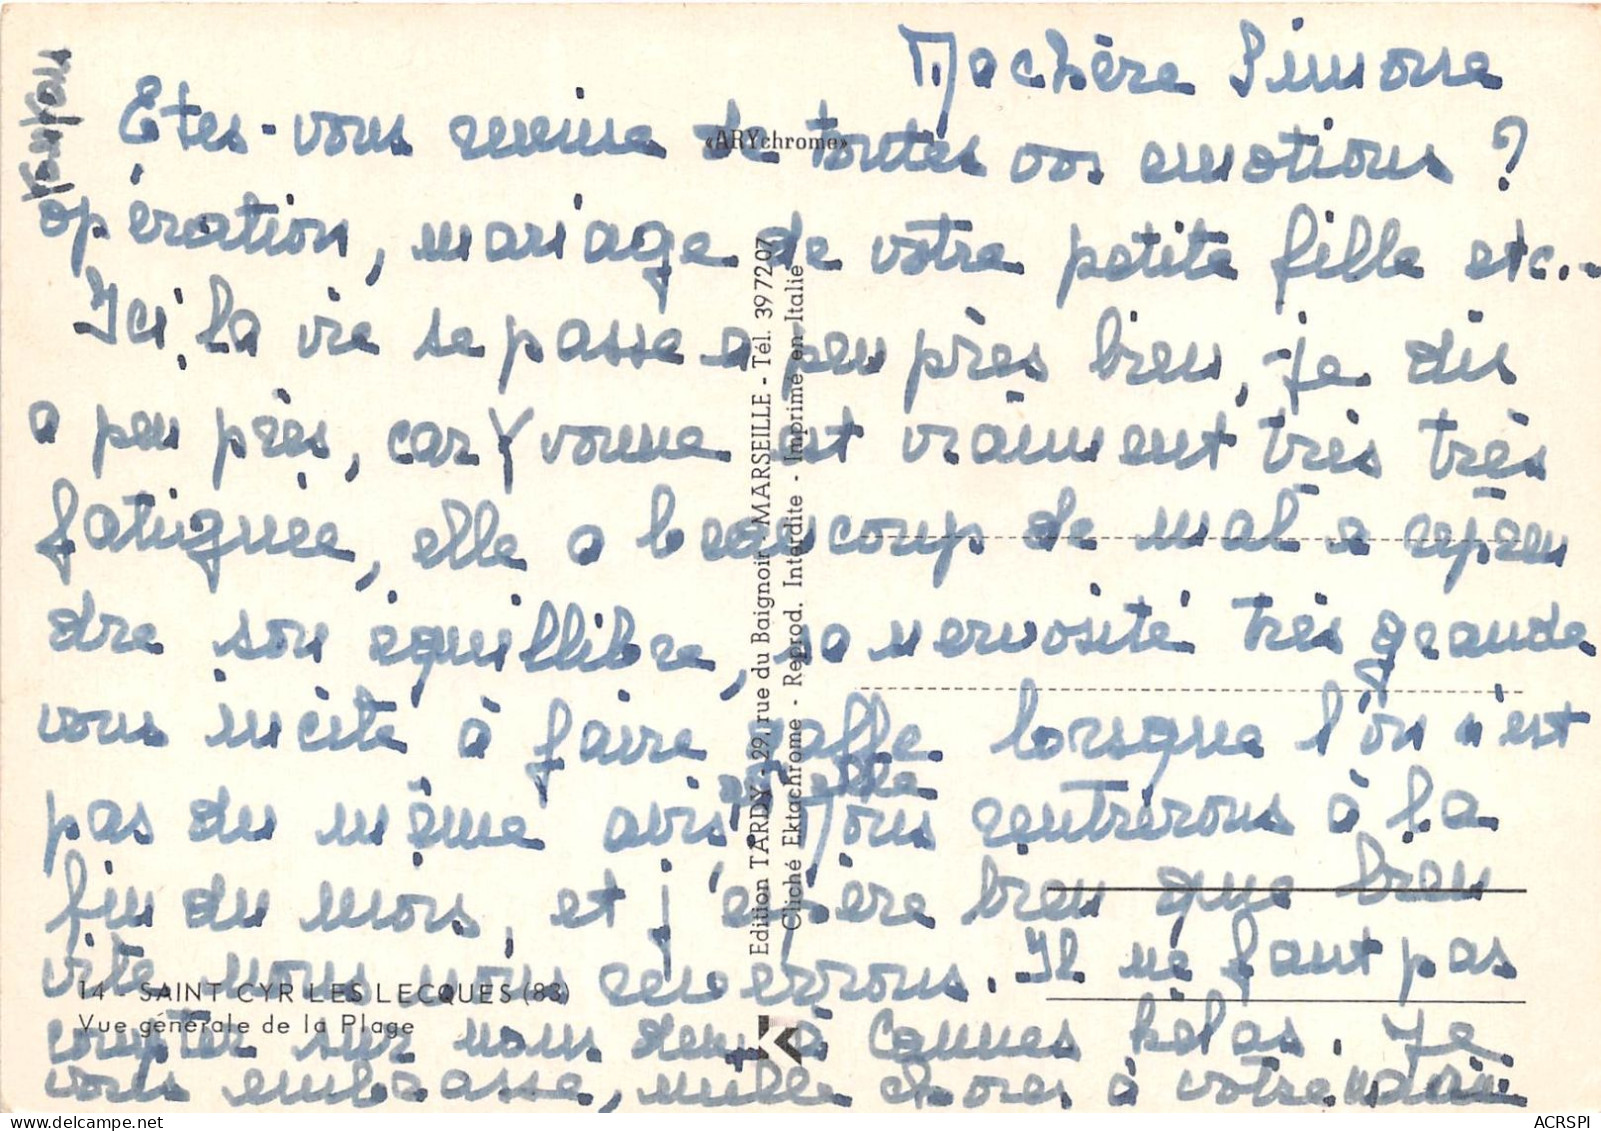 Ma chère Simone
Etes-vous remise de toutes vos emotions ?
opération, mariage de votre petite fille etc.-
Ici, la vie se passe a peu près bien, je dis
a peu près, car Yvonne est vraiment très très
fatiguée, elle a beaucoup de mal a repren
dre son équillibre, sa nervosité très grande
vous incite à faire gaffe lorsque l'on n'est
pas du même avis, Nous rentrerons à la
fin du mois, et j'espère bien que bien
vite nous nous reverrons. Il ne faut pas
compter sur nous deux à Cannes hélas. Je
vous embrasse, mille choses à votre mari
«ARYchrome»
Edition TARDY - 29, rue du Baignoir - MARSEILLE - Tél. 39 72 07
Cliché Ektachrome - Reprod. Interdite - Imprimé en Italie
14 - SAINT CYR LES LECQUES (83)
Vue générale de la Plage
ACRSPI